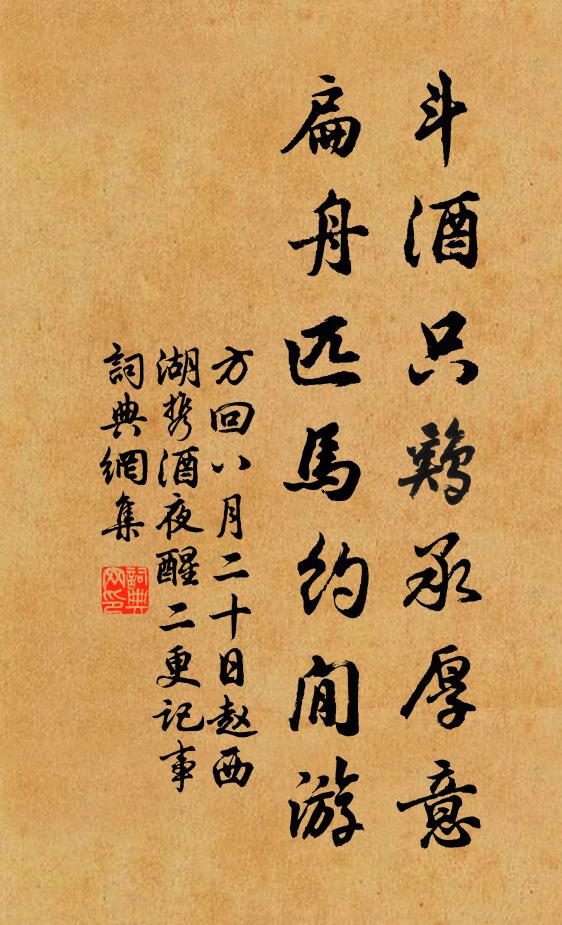 斗酒只鷄承厚意
扁舟匹馬約閒游
方回八月二十日赵西
湖携酒夜醒二更记事
詞典網集
詞典
网印